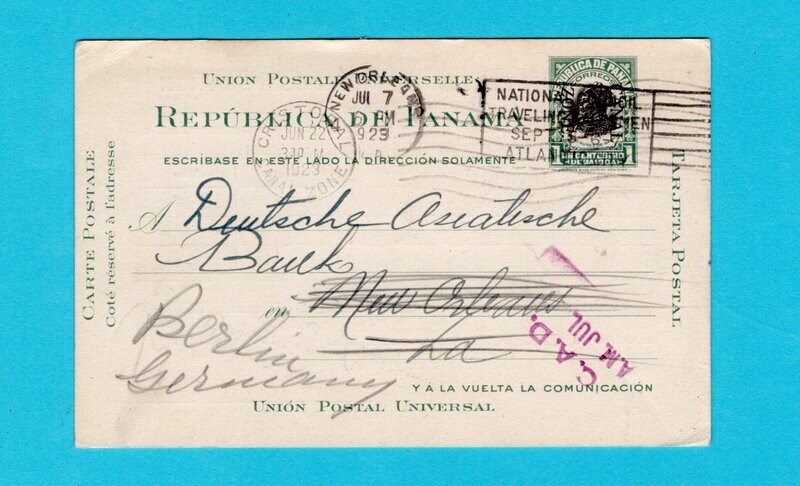 UNION POSTALE UNIVERSELLE
REPÚBLICA DE PANAMÁ
ESCRÍBASE EN ESTE LADO LA DIRECCIÓN SOLAMENTE
CARTE POSTALE
Coté reservé à l'adresse
TARJETA POSTAL
REPÚBLICA DE PANAMÁ
CORREOS
UN CENTESIMO
DE BALBOA
1
CRISTOBAL
JUN 22
330 M
1923
CANAL ZONE
NEW ORLEANS
JUL 7
PM
1923
NATIONAL
TRAVELING MEN
SEP
ATLAN
A Deutsche Asiatische
Bank
en New Orleans
La
Berlin
Germany
C. A. D.
A.M. JUL
Y Á LA VUELTA LA COMUNICACIÓN
UNIÓN POSTAL UNIVERSAL